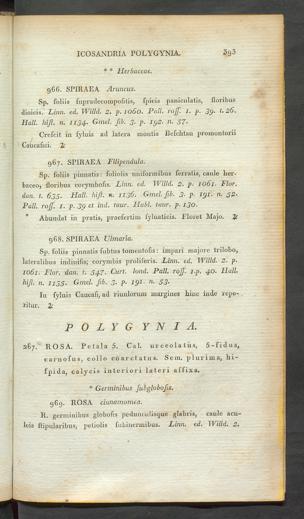 ICOSANDRIA POLYGYNIA. 393
* * Herbaceae.
966. SPIRAEA Aruncus.
Sp. foliis supradecompositis, spicis paniculatis, floribus
dioicis. Linn. ed. Willd. 2. p. 1060. Pall. ross. 1. p. 39. t. 26.
Hall. hist. n. 1134. Gmel. sib. 3. p. 192. n. 57.
Crescit in syluis ad latera montis Beschtau promontorii
Caucasici. ♃
967. SPIRAEA Filipendula.
Sp. foliis pinnatis: foliolis uniformibus serratis, caule her-
baceo, floribus corymbosis. Linn. ed. Willd. 2. p. 1061. Flor.
dan. t. 635. Hall. hist. n. 1136. Gmel. sib. 3. p. 191. n. 52.
Pall. ross. 1. p. 39 et ind. taur. Habl. taur. p. 130.
Abundat in pratis, praesertim syluaticis. Floret Majo. ♃
968. SPIRAEA Ulmaria.
Sp. foliis pinnatis subtus tomentosis: impari majore trilobo,
lateralibus indiuisis; corymbis proliferis. Linn. ed. Willd. 2. p.
1061. Flor. dan. t. 547. Curt. lond. Pall. ross. 1. p. 40. Hall.
hist. n. 1135. Gmel. sib. 3. p. 191. n. 53.
In syluis Caucasi, ad riuulorum margines hinc inde repe-
ritur. ♃
POLYGYNIA.
267. ROSA. Petala 5. Cal. urceolatus, 5-fidus,
carnosus, collo coarctatus. Sem. plurima, hi-
spida, calycis interiori lateri affixa.
* Germinibus subglobosis.
969. ROSA cinnamomea.
R. germinibus globosis pedunculisque glabris, caule acu-
leis stipularibus, petiolis subinermibus. Linn. ed. Willd. 2.